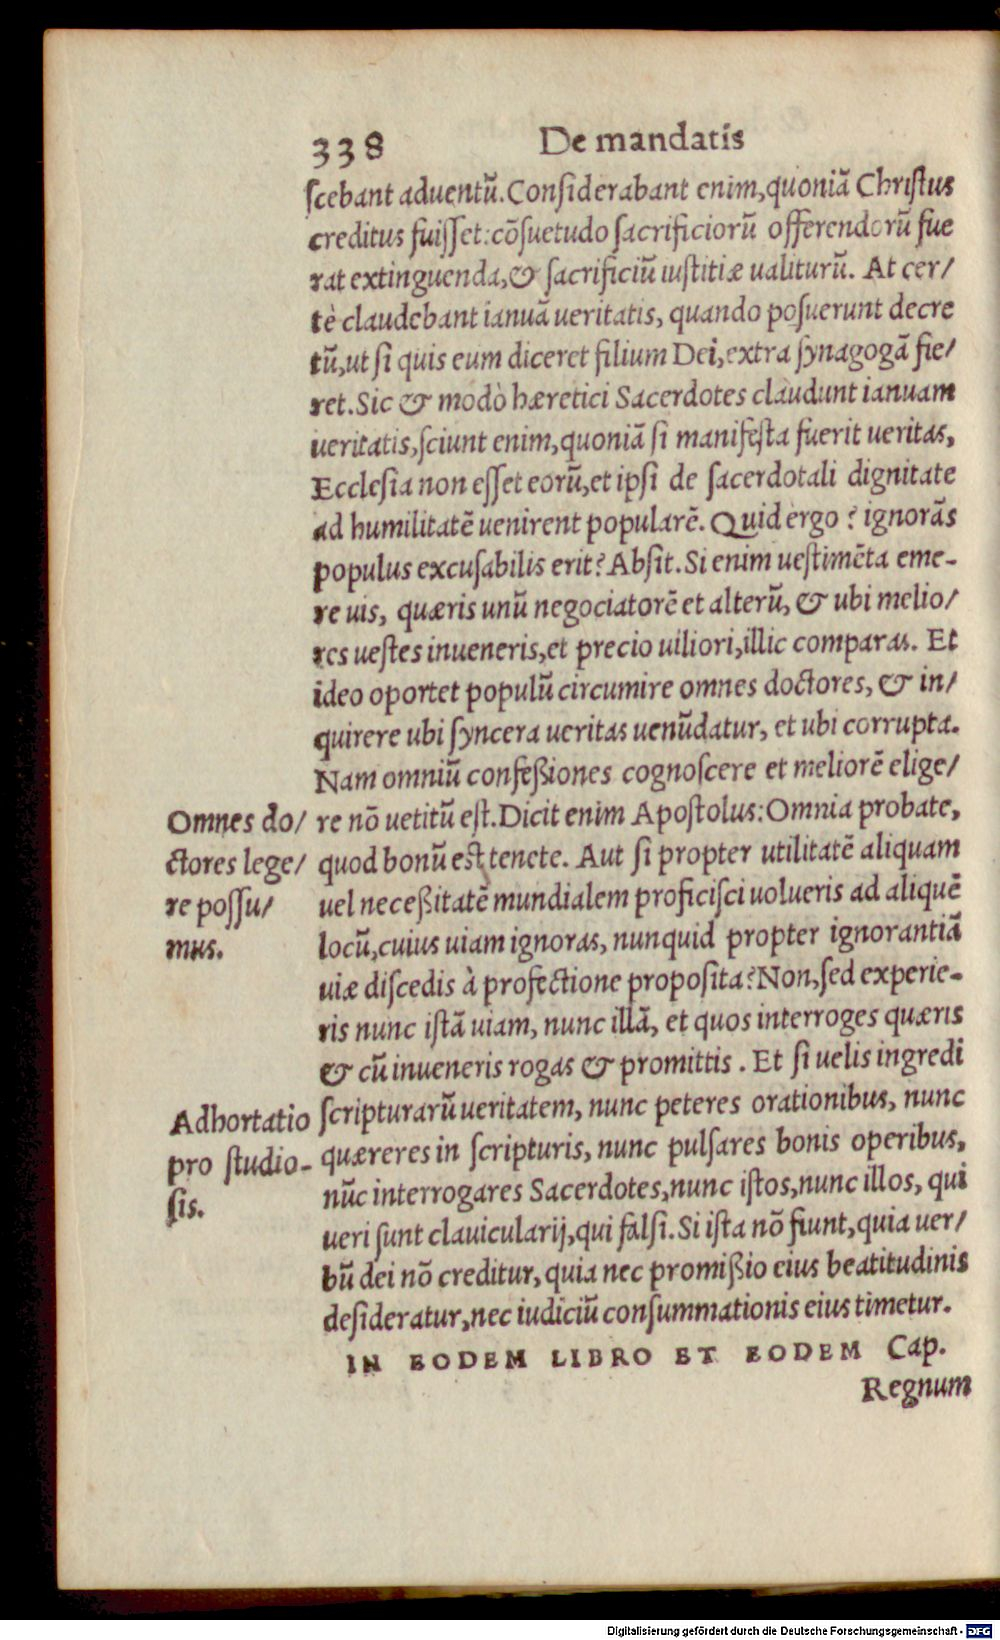 338 De mandatis
ſcebant aduentū. Conſiderabant enim, quoniā Chriſtus
creditus fuiſſet: cōſuetudo ſacrificiorū offerendorū fue
rat extinguenda, & ſacrificiū iuſtitiæ ualiturū. At cer/
tè claudebant ianuā ueritatis, quando poſuerunt decre
tū, ut ſi quis eum diceret filium Dei, extra ſynagogā fie/
ret. Sic & modò hæretici Sacerdotes claudunt ianuam
ueritatis, ſciunt enim, quoniā ſi manifeſta fuerit ueritas,
Eccleſia non eſſet eorū, et ipſi de ſacerdotali dignitate
ad humilitatē uenirent popularē. Quid ergo? ignorās
populus excuſabilis erit? Abſit. Si enim ueſtimēta eme-
re uis, quæris unū negociatorē et alterū, & ubi melio/
res ueſtes inueneris, et precio uiliori, illic comparas. Et
ideo oportet populū circumire omnes doctores, & in/
quirere ubi ſyncera ueritas uenūdatur, et ubi corrupta.
Nam omniū confeßiones cognoſcere et meliorē elige/
re nō uetitū eſt. Dicit enim Apoſtolus: Omnia probate,
quod bonū est tenete. Aut ſi propter utilitatē aliquam
uel neceßitatē mundialem proficiſci uolueris ad aliquē
locū, cuius uiam ignoras, nunquid propter ignorantiā
uiæ diſcedis à profectione propoſita? Non, ſed experie-
ris nunc iſtā uiam, nunc illā, et quos interroges quæris
& cū inueneris rogas & promittis. Et ſi uelis ingredi
ſcripturarū ueritatem, nunc peteres orationibus, nunc
quæreres in ſcripturis, nunc pulſares bonis operibus,
nūc interrogares Sacerdotes, nunc iſtos, nunc illos, qui
ueri ſunt clauicularij, qui falſi. Si iſta nō fiunt, quia uer/
bū dei nō creditur, quia nec promißio eius beatitudinis
deſideratur, nec iudiciū conſummationis eius timetur.
IN EODEM LIBRO ET EODEM Cap.
Regnum
Omnes do/
ctores lege/
re poſſu/
mus.
Adhortatio
pro ſtudio-
ſis.
Digitalisierung gefördert durch die Deutsche Forschungsgemeinschaft - DFG